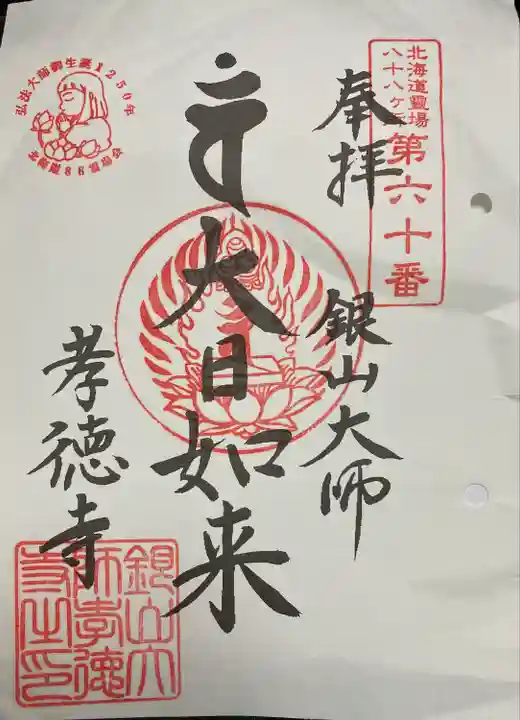 北海道霊場
八十八ヶ所
第六十番
奉拝
銀山大師
大日如来
孝徳寺
弘法大師御生誕1250年
北海道86霊場会
銀山大
師孝徳
寺之印